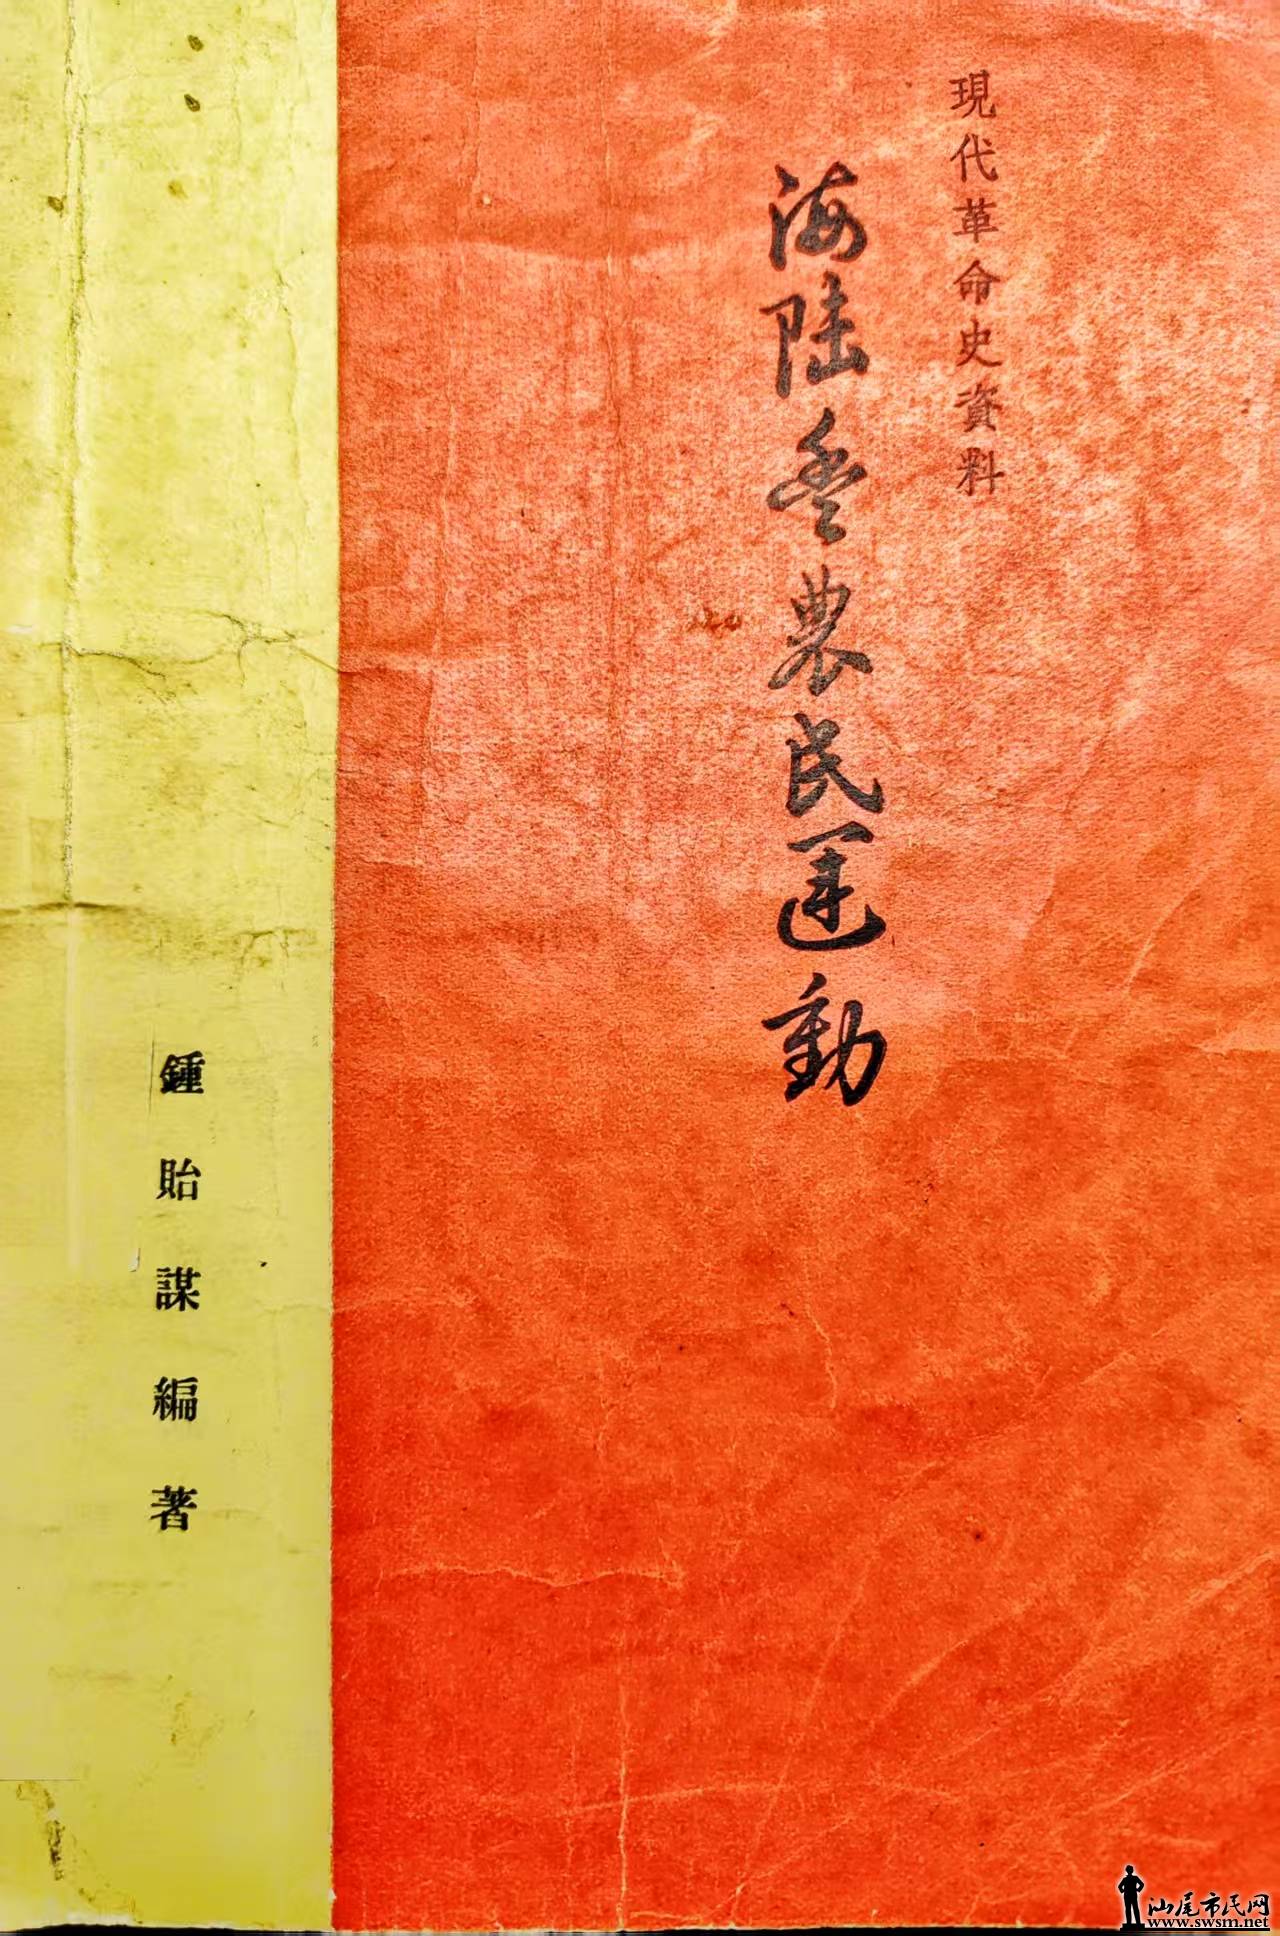 現代革命史資料
海陆丰農民运動
鍾貽謀編著
汕尾市民网
www.swsm.net